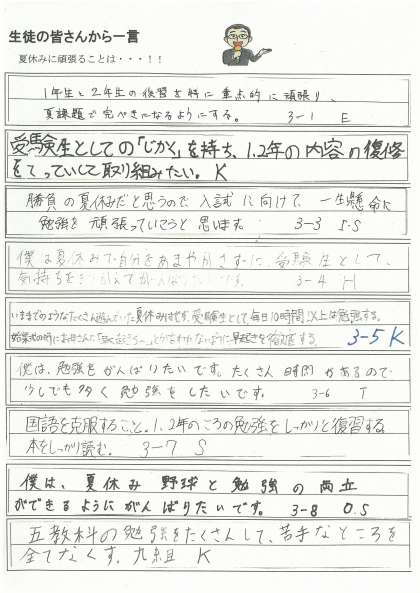 生徒の皆さんから一言
夏休みに頑張ることは・・・！！
1年生と2年生の復習を特に重点的に頑張り、
夏課題で完ぺきになるようにする。 3-1 E
受験生としての「じかく」を持ち、1、2年の内容の復修
をてっていして取り組みたい。 K
勝負の夏休みだと思うので入試に向けて一生懸命に
勉強を頑張っていこうと思います。 3-3 S.S
僕は夏休みで自分をあまやかさずに、受験生として、
気持ちを 3-4 H
いままでのようなたくさん遊んでいた夏休みはせず、受験生として毎日10時間以上は勉強する。
始業式の時にお母さんに「早く起きろ〜」とか言われないように早起きを徹底する。 3-5 K
僕は、勉強をがんばりたいです。たくさん時間があるので
少しでも多く勉強をしたいです。 3-6 T
国語を克服すること。1、2年のころの勉強をしっかりと復習する
本をしっかり読む。 3-7 S
僕は、夏休み野球と勉強の両立
ができるようにがんばりたいです。 3-8 O.S
五教科の勉強をたくさんして、苦手なところを
全てなくす。九組 K